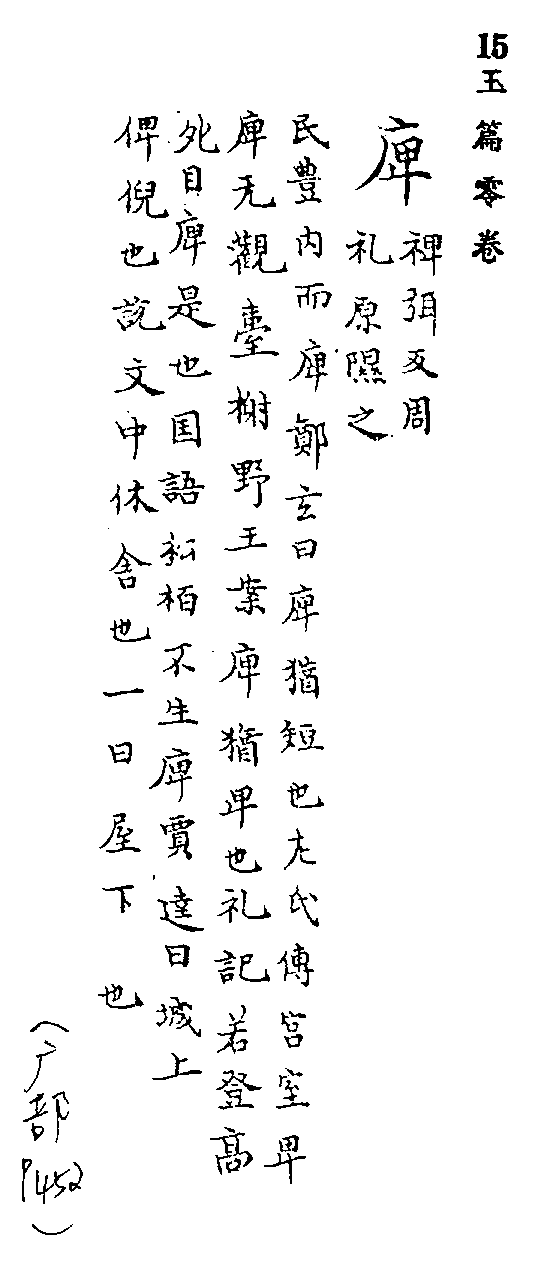 15玉篇零卷
庳
裨弭反周
礼原隰之
民豊内而庳鄭玄曰庳猶短也左氏傳宮室卑
庳无觀臺榭野王案庳猶卑也礼記若登髙
死目庳是也国語松栢不生庳賈逵曰城上
俾倪也説文中休舎也一曰屋下也
(广部P452)